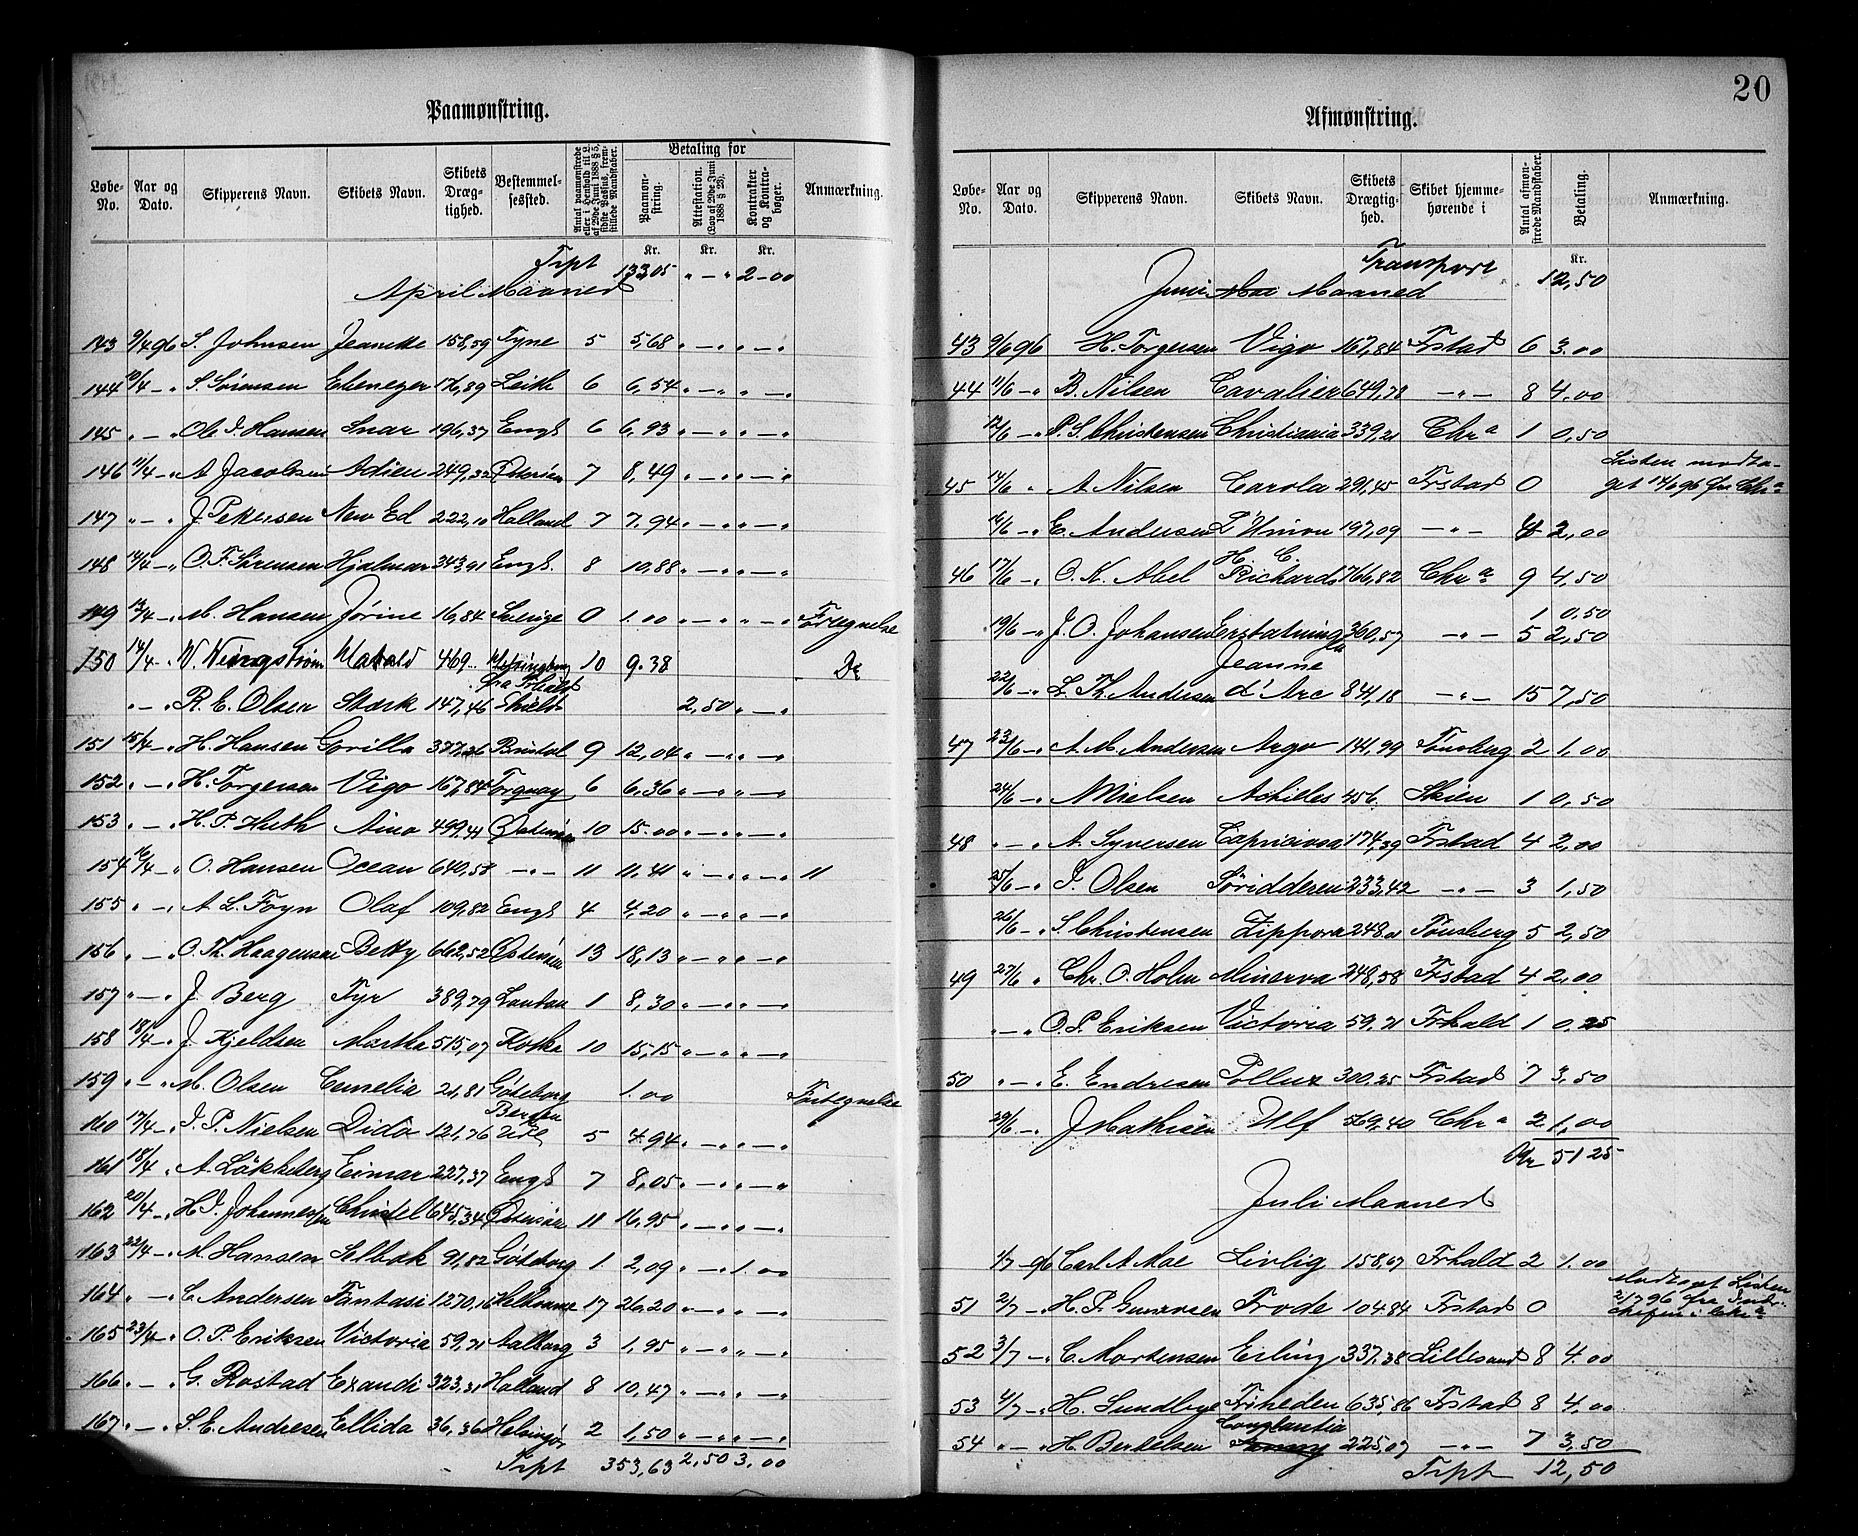 Paamønstring.
Løbe-No. Aar og Dato. Skipperens Navn. Skibets Navn. Skibets Dræg-tighed. Bestemmel-sessted. Antal paamønstrede eller i Henhold til L. af 29de Juni 1888 § 5, sidste Passus, frem-stillede Mandskaber. Betaling for Paamøn-string. Attestation. (Lov af 29de Juni 1888 § 23). Kontrakter og Kontra-bøger. Anmærkning.
Kr. Kr. Kr.
Trpt 133,05 " — " 2-00
April Maaned
143 9/4 96 S. Johnsen Jeanette 158,59 Tyne 5 5,68 " — " " — "
144 10/4 — " S. Sørensen Ebenezer 176,89 Leith 6 6,54 " — " " — "
145 " — " Ole J. Hansen Snar 196,37 Engl 6 6,93 " — " " — "
146 11/4 — " A. Jacobsen Adien 249,32 Østersøen 7 8,49 " — " " — "
147 " — " J. Petersen New Ed 222,10 Holland 7 7,94 " — " " — "
148 14/4 — " O. F. Sørensen Hjalmar 343,91 Engl 8 10,88 " — " " — "
149 13/4 — " M. Hansen Jørine 16,84 Sverige 0 1.00 " — " " — " Fortegnelse
150 14/4 — " W. Wingstrøm Harald 469 Helsingborg fra Frhald 10 9.38 Do
" — " R. E. Olsen Stærk 147,46 Shields 2,50 " — "
151 15/4 — " H. Hansen Gorilla 377,26 Bristol 9 12,04 " — " " — "
152 " — " H. Torgersen Vigo 167,84 Torquay 6 6,36 " — " " — "
153 " — " H. P. Huth Aino 499,41 Østersøen 10 15.00 " — " " — "
154 16/4 — " O. Hansen Ocean 640,53 — " — 11 11,41 " — " " — " 11
155 " — " A. L. Foyn Olaf 109,82 Engl 4 4,20 " — " " — "
156 " — " O. M. Haagensen Betty 662,52 Østersøen 13 18,13 " — " " — "
157 " — " J. Berg Tyr 389,79 London 1 8,30 " — " " — "
158 18/4 — " J. Kjeldsen Martha 515,07 Kotka 10 15,15 " — " " — "
159 " — " M. Olsen Cornelia 21,81 Göteborg 1.00 Fortegnelse
160 17/4 — " J. P. Nielsen Dido 121,76 5 4.94 " — " " — "
161 18/4 A. Løkkeberg Eimar 227,37 Engl 7 8,05 " — " " — "
162 20/4 — " H. J. Johannessen Christel 645,34 Østersøen 11 16,95 " — " " — "
163 22/4 — " M. Hansen Selbak 91,82 Göteborg 1 2,09 " — " 1.00
164 " — " C. Andersen Fantasi 1270,16 Melbourne 17 26,20 " — " " — "
165 23/4 — " O. P. Eriksen Victoria 59,21 Aalborg 3 1,95 " — " " — "
166 " — " G. Rostad Exandi 323,31 Holland 8 10,47 " — " " — "
167 " — " S. E. Andresen Ellida 36,36 Helsingør 2 1,50 " — " " — "
Trpt 353,63 2,50 3.00
20
Afmønstring.
Løbe-No. Aar og Dato. Skipperens Navn. Skibets Navn. Skibets Drægtig-hed. Skibet hjemme-hørende i Antal afmøn-strede Mandskaber. Betaling. Anmærkning.
Kr.
Transport 12,50
Juni Mai Maaned
43 9/6 96 H. Torgersen Vigo 167,84 Frstad 6 3.00
44 11/6 — " B. Nilsen Cavalier 649,78 — " — 8 4.00
12/6 — " P. S. Christensen Christiania 339,21 Chra 1 0,50
45 14/6 " A. Nilsen Carola 291,45 Frstad 0 Listen modta-get 14/6 96 fra Chra
16/6 — " E. Andersen L'Union 197,09 — " — 4 2,00
46 17/6 — " O. K. Abel H. C. Richards 766,82 Chra 9 4.50
1 0,50
19/6 — " J. O. Johansen Erstatningen 360,57 — " — 5 2,50
22/6 — " L. Th. Andersen Jeanne d'Arc 841,18 — " — 15 7,50
47 23/6 — " A. M. Andersen Argo 141,99 Tønsberg 2 1.00
24/6 — " N. Nielsen Achilles 456. Skien 1 0,50
48 " — " A. Syversen Capriciosa 174,39 Frstad 4 2,00
25/6 — " J. Olsen Søridderen 233,42 — " — 3 1,50
26/6 — " S. Christensen Zippora 248,01 Tønsberg 5 2,50
49 27/6 " Chr. O. Holm Minerva 249,58 Frstad 4 2,00
" — " O. P. Eriksen Victoria 59,21 Frhald 1 0,25
50 " — " E. Endresen Pollux 300,25 Frstad 7 3,50
29/6 — " J. Mathisen Ulf 569,40 Chra 2 1,00
Kr 51 25
Juli Maaned
1/7 — 96 Carl A. Moe Livlig 158,67 Frhald 2 1.00
51 2/7 — " H. P. Gunersen Frode 104.84 Frstad 0 Modtaget Listen 2/7 96 fra
52 3/7 — " C. Mortensen Erling 337,38 Lillesand 8 4.00
53 4/7 — " H. Lundbye Friheden 635,86 Frstad 8 4.00
54 " — " H. Bertelsen Constantia 225,07 — " — 7 3,50
Trpt 12,50